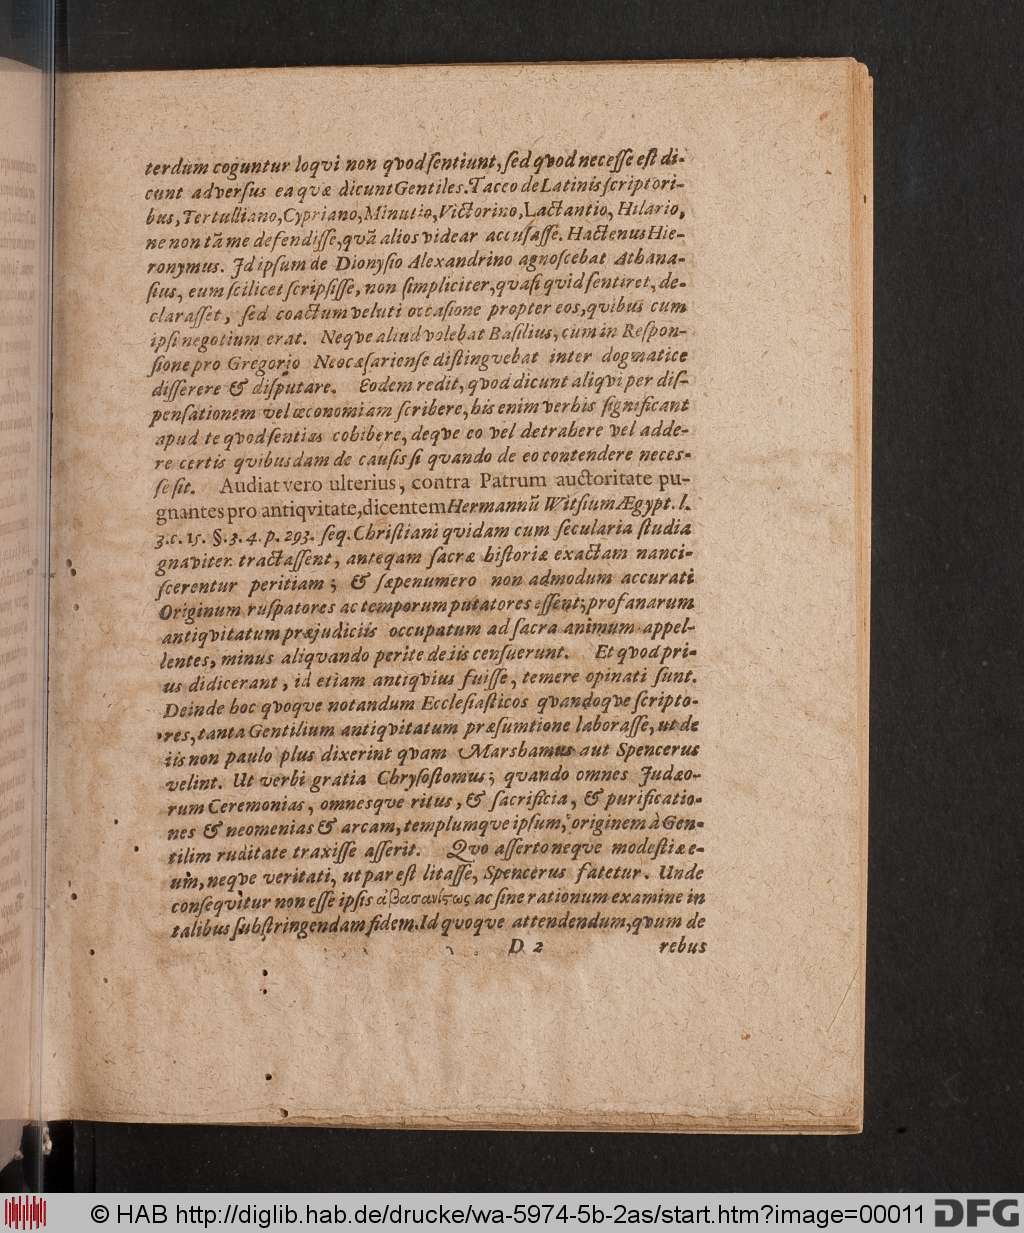 terdum coguntur loqvi non qvod sentiunt, sed qvod necesse est di-
cunt adversus ea qvæ dicunt Gentiles. Taceo de Latinis scriptori-
bus, Tertulliano, Cypriano, Minutio, Victorino, Lactantio, Hilario,
ne non tã me defendisse, qvã alios videar accusasse. Hactenus Hie-
ronymus. Id ipsum de Dionysio Alexandrino agnoscebat Athana-
sius, eum scilicet scripsisse, non simpliciter, qvasi qvid sentiret, de-
clarasset, sed coactum veluti occasione propter eos, qvibus cum
ipsi negotium erat. Neqve aliud volebat Basilius, cum in Respon-
sione pro Gregorio Neocæsariense distingvebat inter dogmatice
disserere & disputare. Eodem redit, qvod dicunt aliqvi per dis-
pensationem vel œconomiam scribere, his enim verbis significant
apud te qvod sentias cohibere, deqve eo vel detrahere vel adde-
re certis qvibusdam de causis si qvando de eo contendere neces-
se sit. Audiat vero ulterius, contra Patrum auctoritate pu-
gnantes pro antiqvitate, dicentem Hermannũ Witsium Ægypt. l.
3. c. 15. §. 3. 4. p. 293. seq. Christiani qvidam cum secularia studia
gnaviter tractassent, anteqam sacræ historiæ exactam nanci-
scerentur peritiam; & sæpenumero non admodum accurati
Originum ruspatores ac temporum putatores essent; profanarum
antiqvitatum præjudiciis occupatum ad sacra animum appel-
lentes, minus aliqvando perite de iis censuerunt. Et qvod pri-
us didicerant, id etiam antiqvius fuisse, temere opinati sunt.
Deinde hoc qvoqve notandum Ecclesiasticos qvandoqve scripto-
res, tanta Gentilium antiqvitatum præsumtione laborasse, ut de
iis non paulo plus dixerint qvam Marshamus aut Spencerus
velint. Ut verbi gratia Chrysostomus; qvando omnes Judæo-
rum Ceremonias, omnesqve ritus, & sacrificia, & purificatio-
nes & neomenias & arcam, templumqve ipsum, originem à Gen-
tilim ruditate traxisse asserit. Qvo asserto neqve modestiæ e-
um, neqve veritati, ut par est litasse, Spencerus fatetur. Unde
conseqvitur non esse ipsis ἀβασανίςως ac sine rationum examine in
talibus substringendam fidem. Id quoqve attendendum, qvum de
D 2 rebus
© HAB http://diglib.hab.de/drucke/wa-5974-5b-2as/start.htm?image=00011 DFG